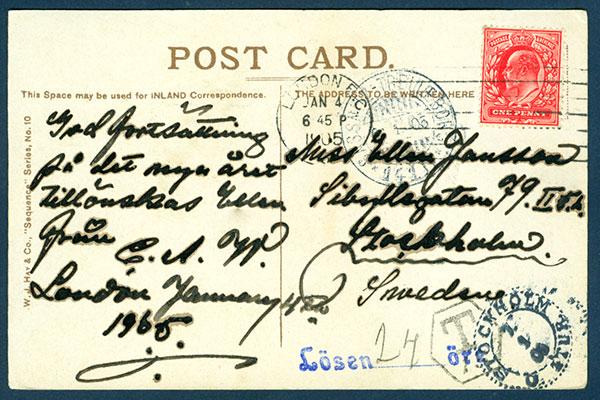 POST CARD.
This Space may be used for INLAND Correspondence.
THE ADDRESS TO BE WRITTEN HERE
W. J. Hay & Co., "Sequence" Series, No. 10
God fortsättning
på det nya året
tillönskas Ellen
från
E. A. W.
London January 4th
1905.
Miss Ellen Jansson
Sibyllegatan 79. II
Stockholm.
Sweden
LONDON
JAN 4
6 45 P
1905
141
ONE PENNY
Lösen 24 öre
T
STOCKHOLM